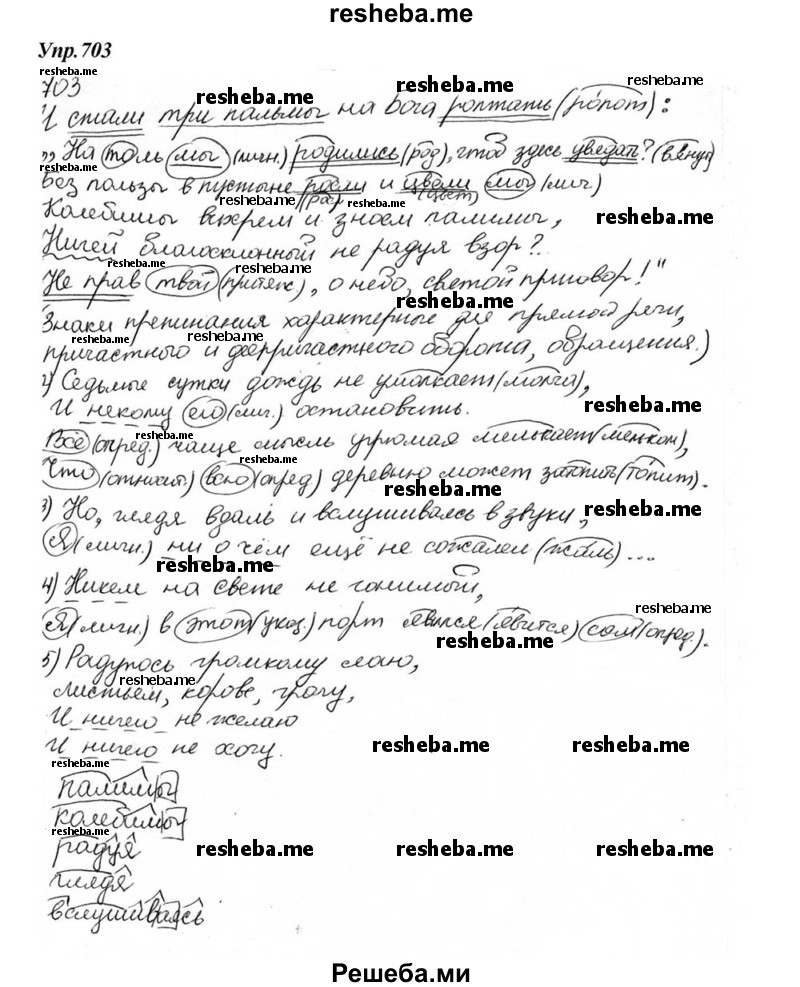 resheba.me
Упр.703
resheba.me
resheba.me
resheba.me
resheba.me
703
И стали три пальмы на бога роптать (ро́пот):
„На то ль мы (личн.) родились (род), чтоб здесь увядать?
Без пользы в пустыне росли и цвели мы (личн)
(рост) (цвет)
resheba.me
resheba.me
Колеблимы вихрем и зноем палимы,
resheba.me
Ничей благосклонный не радуя взор?..
resheba.me
resheba.me
Не прав твой (притяж), о небо, святой приговор!"
resheba.me
resheba.me
Знаки препинания характерные для прямой речи,
resheba.me
resheba.me
причастного и деепричастного оборота, обращения.)
2) Седьмые сутки дождь не умолкает (молча),
resheba.me
И некому его (личн.) остановить.
resheba.me
Всё (опред.) чаще мысль угрюмая мелькает (мельком),
resheba.me
Что (относит) всю (опред) деревню может затопить (то́пит).
resheba.me
resheba.me
3) Но, глядя вдаль и вслушиваясь в звуки,
Я (личн.) ни о чём ещё не сожалел (жаль)...
resheba.me
4) Никем на свете не гонимый,
resheba.me
Я (личн.) в этот (указ.) порт явился (я́вится) сам (опред.).
resheba.me
5) Радуюсь громкому лаю,
resheba.me
листьям, корове, грачу,
И ничего не желаю
И ничего не хочу.
resheba.me
resheba.me
resheba.me
палимы
колеблимы
resheba.me
радуя
resheba.me
resheba.me
resheba.me
resheba.me
глядя
вслушиваясь
Решеба.ми